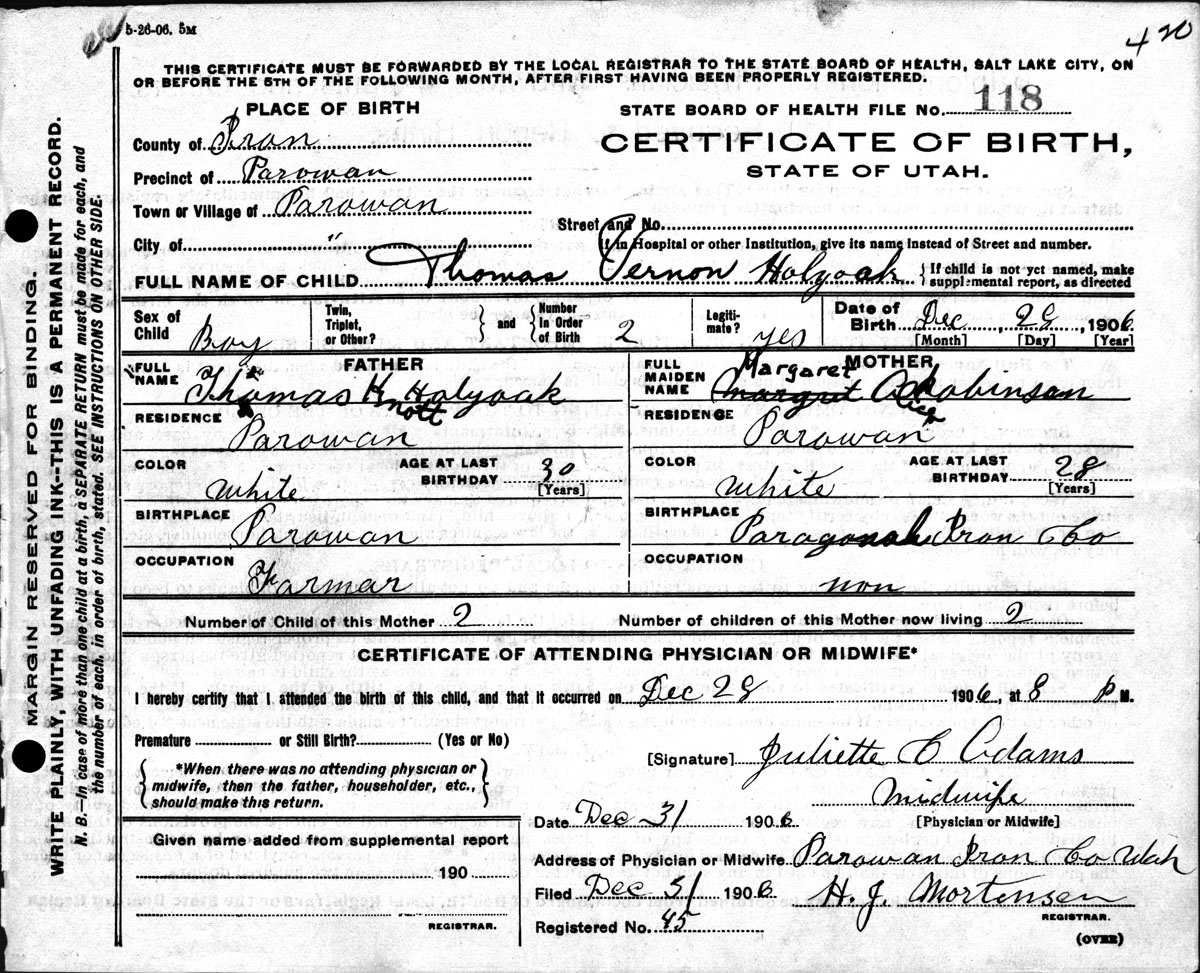 5-26-06. 5M
420
THIS CERTIFICATE MUST BE FORWARDED BY THE LOCAL REGISTRAR TO THE STATE BOARD OF HEALTH, SALT LAKE CITY, ON
OR BEFORE THE 5TH OF THE FOLLOWING MONTH, AFTER FIRST HAVING BEEN PROPERLY REGISTERED.
PLACE OF BIRTH
STATE BOARD OF HEALTH FILE No. 118
County of Iron
CERTIFICATE OF BIRTH,
Precinct of Parowan
STATE OF UTAH.
Town or Village of Parowan
Street and No.
City of "
If in Hospital or other Institution, give its name instead of Street and number.
FULL NAME OF CHILD Thomas Vernon Holyoak { If child is not yet named, make supplemental report, as directed
Sex of Child Boy
Twin, Triplet, or Other? } and { Number in Order of Birth 2
Legitimate? yes
Date of Birth Dec, 28, 1906
[Month] [Day] [Year]
FATHER
MOTHER
FULL NAME Thomas K nott Holyoak
FULL MAIDEN NAME Margaret margret Alice Robinson
RESIDENCE Parowan
RESIDENCE Parowan
COLOR White AGE AT LAST BIRTHDAY 30 [Years]
COLOR White AGE AT LAST BIRTHDAY 28 [Years]
BIRTHPLACE Parowan
BIRTHPLACE Paragonah Iron Co
OCCUPATION Farmar
OCCUPATION non
Number of Child of this Mother 2 Number of children of this Mother now living 2
CERTIFICATE OF ATTENDING PHYSICIAN OR MIDWIFE*
I hereby certify that I attended the birth of this child, and that it occurred on Dec 28 1906, at 8 P M.
Premature or Still Birth? (Yes or No)
[Signature] Juliette C Adams
{ *When there was no attending physician or midwife, then the father, householder, etc., should make this return. }
Midwife
[Physician or Midwife]
Date Dec 31 1906
Given name added from supplemental report
190
REGISTRAR.
Address of Physician or Midwife Parowan Iron Co Utah
Filed Dec 31 1906 H. J. Mortensen
REGISTRAR.
Registered No. 45
(OVER)
MARGIN RESERVED FOR BINDING.
WRITE PLAINLY, WITH UNFADING INK--THIS IS A PERMANENT RECORD.
N. B.--In case of more than one child at a birth, a SEPARATE RETURN must be made for each, and
the number of each, in order of birth, stated. SEE INSTRUCTIONS ON OTHER SIDE.